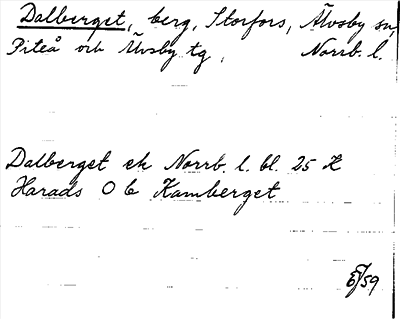 Dalberget, berg, Storfors, Älvsby sn,
Piteå och Älvsby tg, Norrb. l.
Dalberget ek Norrb. l. bl. 25 H
Harads O b Kamberget